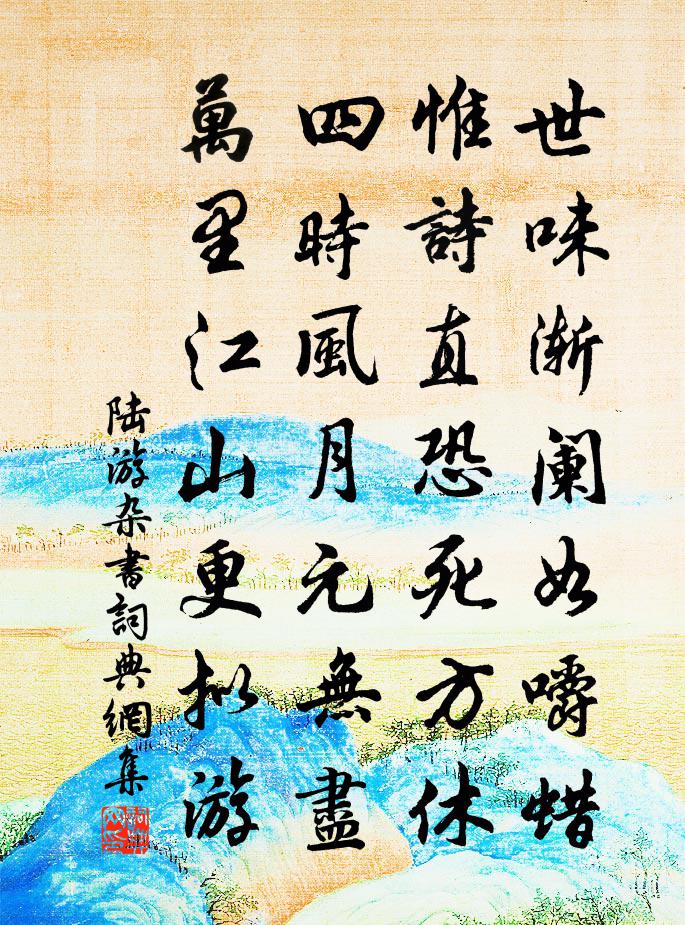 世味渐阑如嚼蜡
惟詩直恐死方休
四時風月元無盡
萬里江山更拟游
陆游杂書詞典網集